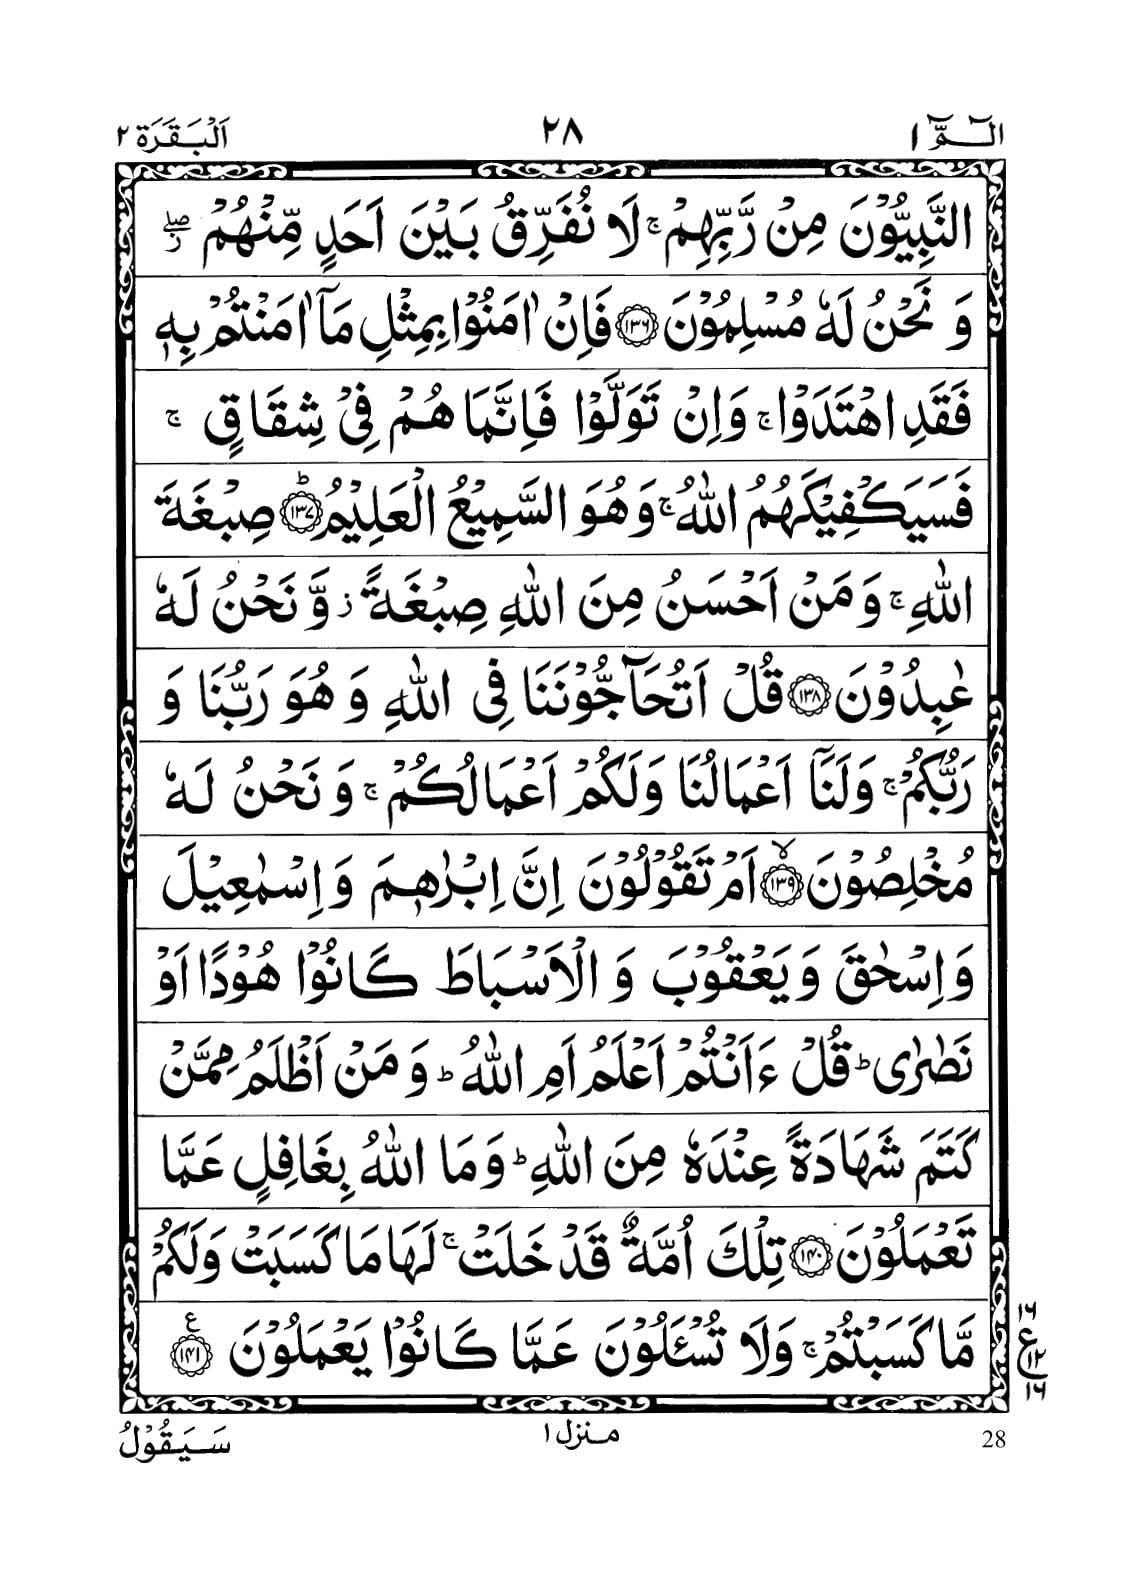 الٓمّٓ ١ ٢٨ اَلْبَقَرَة ٢
النَّبِيُّوْنَ مِنْ رَّبِّهِمْ ۚ لَا نُفَرِّقُ بَيْنَ اَحَدٍ مِّنْهُمْ ۖز
وَ نَحْنُ لَهٗ مُسْلِمُوْنَ ﴿۱۳۶﴾ فَاِنْ اٰمَنُوْا بِمِثْلِ مَآ اٰمَنْتُمْ بِهٖ
فَقَدِ اهْتَدَوْا ۚ وَاِنْ تَوَلَّوْا فَاِنَّمَا هُمْ فِيْ شِقَاقٍ ۚ
فَسَيَكْفِيْكَهُمُ اللّٰهُ ۚ وَهُوَ السَّمِيْعُ الْعَلِيْمُ ؕ﴿۱۳۷﴾ صِبْغَةَ
اللّٰهِ ۚ وَ مَنْ اَحْسَنُ مِنَ اللّٰهِ صِبْغَةً ز وَّ نَحْنُ لَهٗ
عٰبِدُوْنَ ﴿۱۳۸﴾ قُلْ اَتُحَآجُّوْنَنَا فِي اللّٰهِ وَ هُوَ رَبُّنَا وَ
رَبُّكُمْ ۚ وَلَنَآ اَعْمَالُنَا وَلَكُمْ اَعْمَالُكُمْ ۚ وَ نَحْنُ لَهٗ
مُخْلِصُوْنَ ۙ﴿۱۳۹﴾ اَمْ تَقُوْلُوْنَ اِنَّ اِبْرٰهٖمَ وَ اِسْمٰعِيْلَ
وَ اِسْحٰقَ وَ يَعْقُوْبَ وَ الْاَسْبَاطَ كَانُوْا هُوْدًا اَوْ
نَصٰرٰى ؕ قُلْ ءَاَنْتُمْ اَعْلَمُ اَمِ اللّٰهُ ؕ وَ مَنْ اَظْلَمُ مِمَّنْ
كَتَمَ شَهَادَةً عِنْدَهٗ مِنَ اللّٰهِ ؕ وَ مَا اللّٰهُ بِغَافِلٍ عَمَّا
تَعْمَلُوْنَ ﴿۱۴۰﴾ تِلْكَ اُمَّةٌ قَدْ خَلَتْ ۚ لَهَا مَا كَسَبَتْ وَلَكُمْ
مَّا كَسَبْتُمْ ۚ وَلَا تُسْـَٔلُوْنَ عَمَّا كَانُوْا يَعْمَلُوْنَ ﴿۱۴۱﴾ ع
١٦
ع ١٢
١٦
28 منزل ١ سَيَقُوْلُ